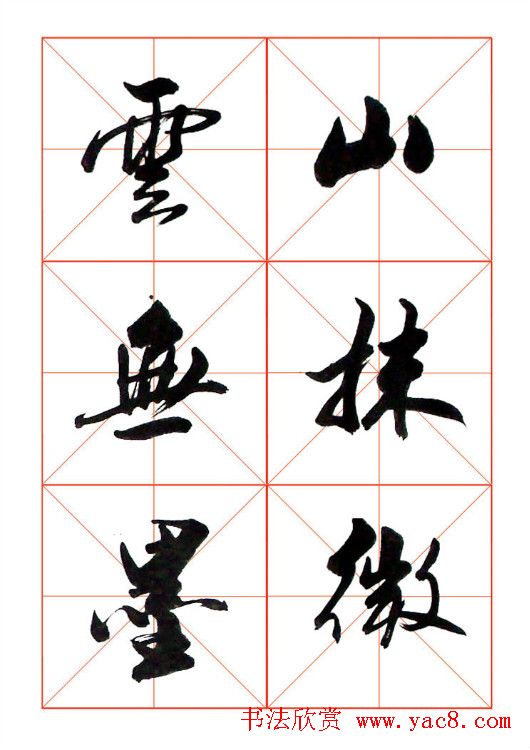 山抹微
雲無墨
书法欣赏 www.yac8.com